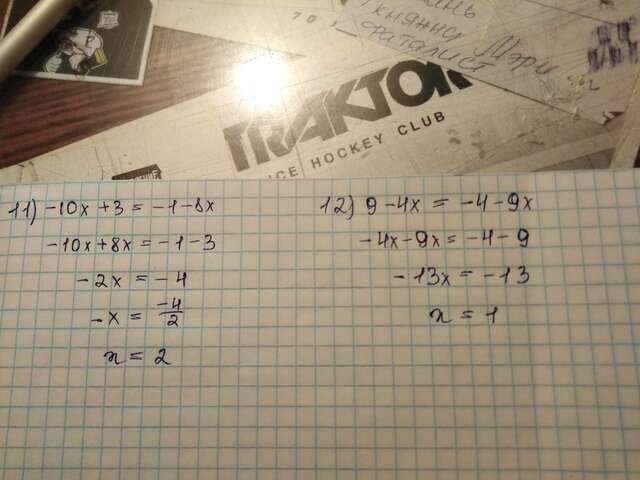 70
княжна Мэри
фаталист
TRAKTOR
ICE HOCKEY CLUB
11) -10x + 3 = -1 - 8x
-10x + 8x = -1 - 3
-2x = -4
-x = -4/2
x = 2
12) 9 - 4x = -4 - 9x
-4x - 9x = -4 - 9
-13x = -13
x = 1